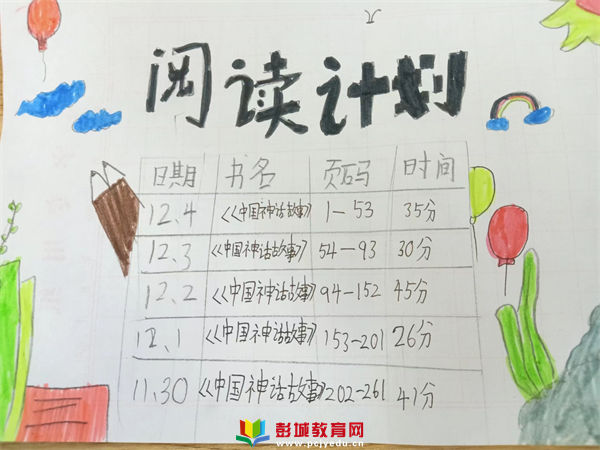 阅读计划
日期 书名 页码 时间
12.4 《中国神话故事》 1-53 35分
12.3 《中国神话故事》 54-93 30分
12.2 《中国神话故事》 94-152 45分
12.1 《中国神话故事》 153-201 26分
11.30 《中国神话故事》 202-261 41分
彭城教育网
www.pcjyedu.cn